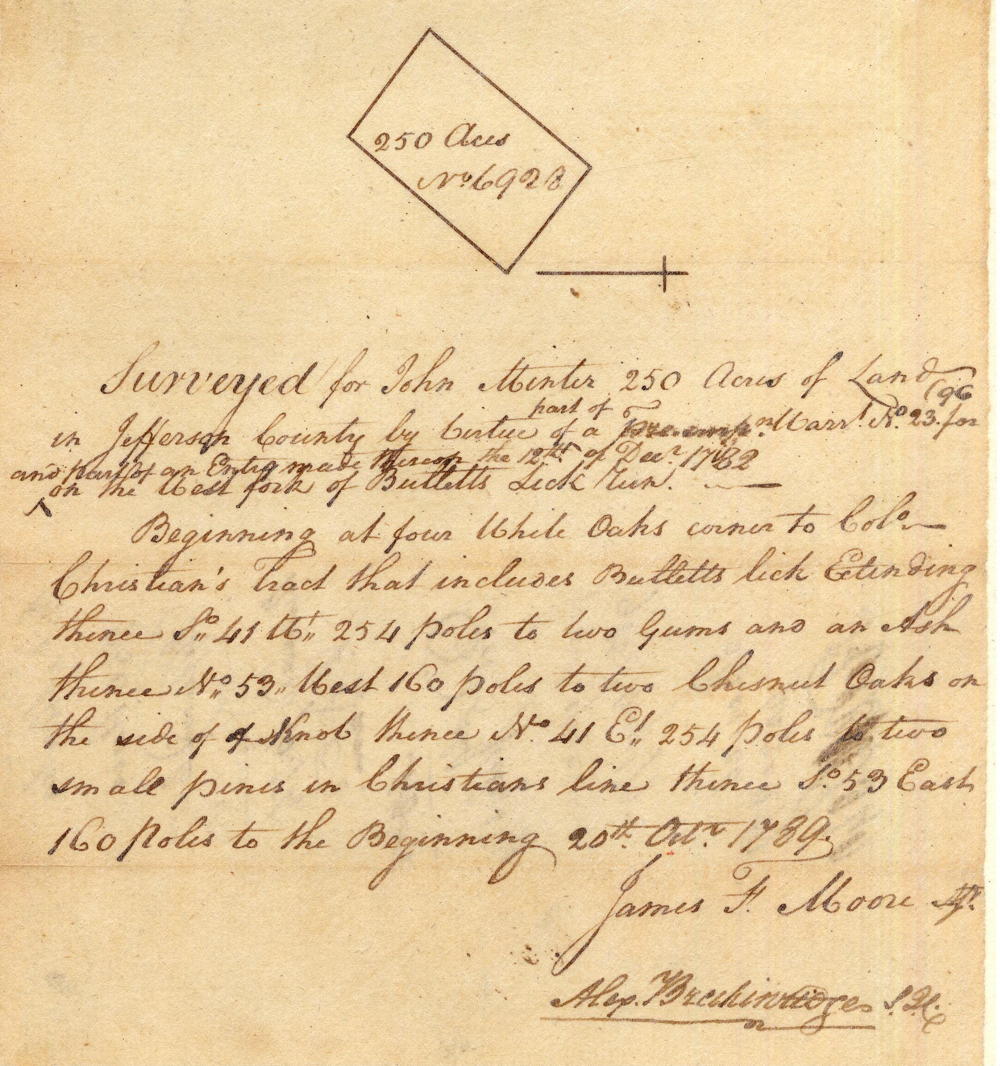 250 Acres
No 6928
Surveyed for John Minter 250 Acres of Land
in Jefferson County by Virtue of a part of Preempn Warrt No. 23. for
and part of an Entry made thereon the 12th of Decr 1782
on the West fork of Bulletts Lick Run.
Beginning at four White Oaks corner to Colo
Christian's Tract that includes Bulletts lick Extending
thence So 41 Wt 254 poles to two Gums and an Ash
thence No 53 West 160 poles to two Chesnut Oaks on
the side of a Knob thence No 41 Et 254 poles to two
small pines in Christians line thence So 53 East
160 Poles to the Beginning 20th Octr 1789.
James F. Moore
Alex. Breckinridge S.J.C